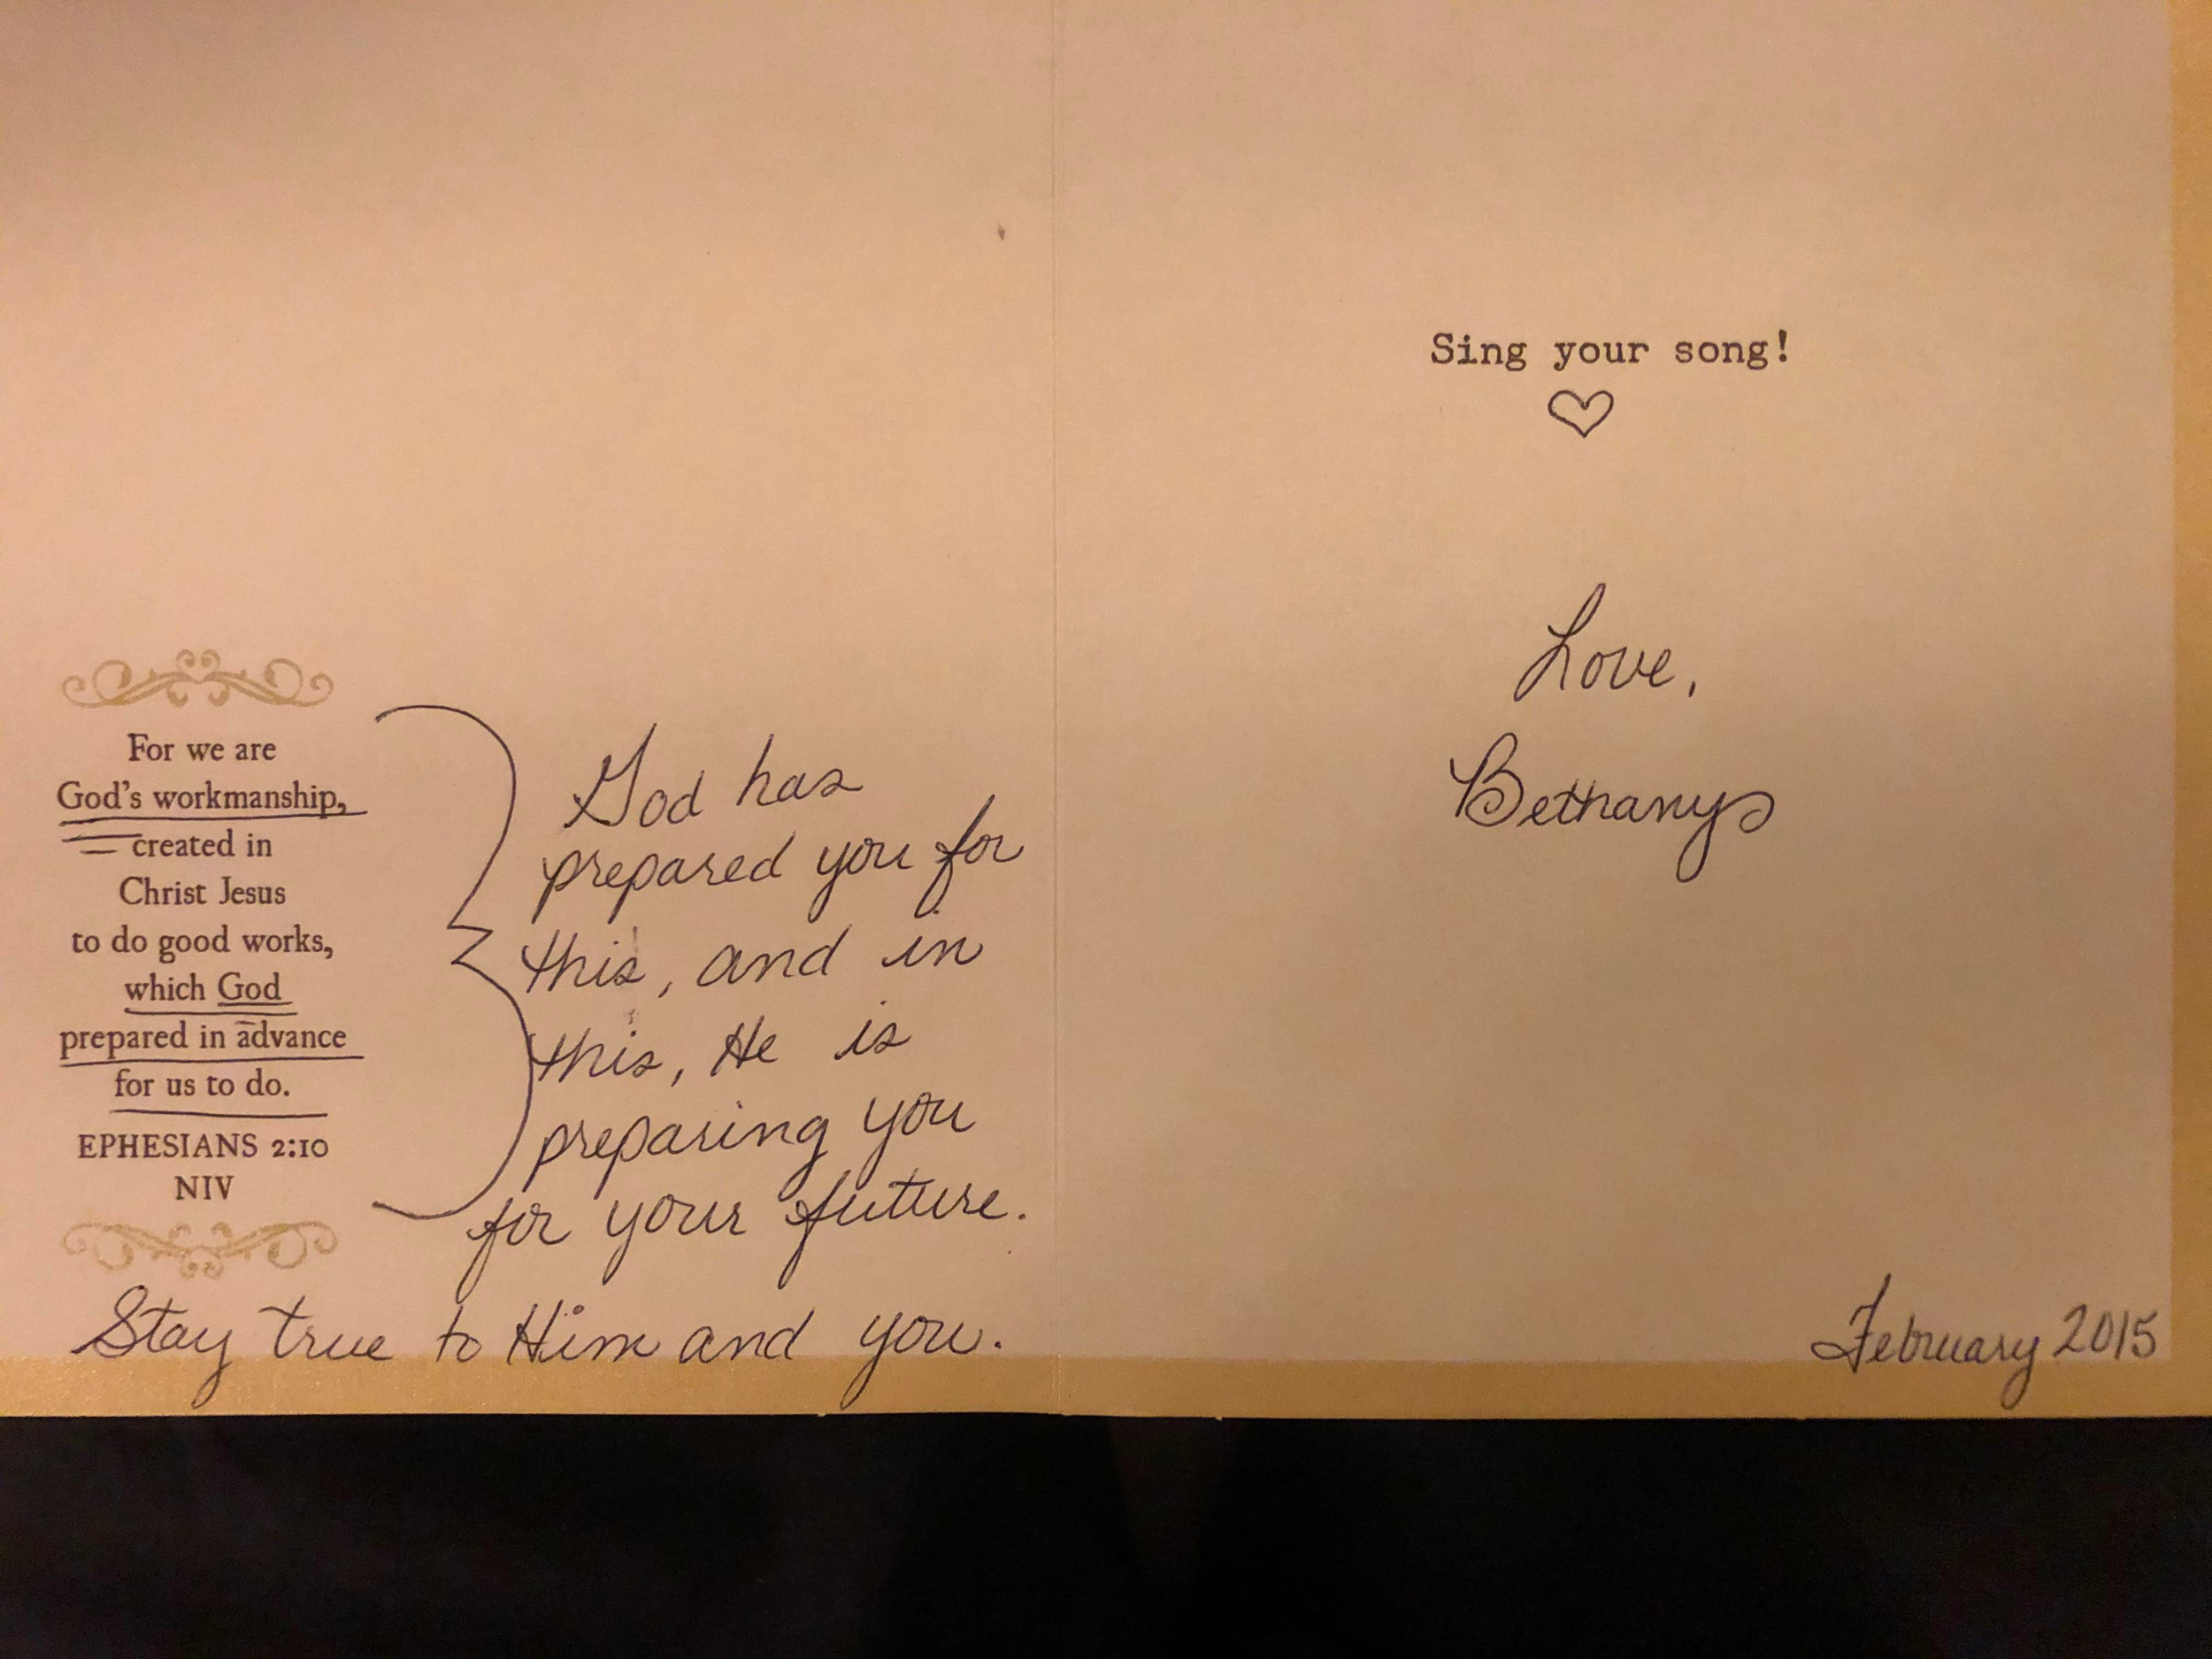 For we are
God's workmanship,
created in
Christ Jesus
to do good works,
which God
prepared in advance
for us to do.
EPHESIANS 2:10
NIV
God has
prepared you for
this, and in
this, He is
preparing you
for your future.
Stay true to Him and you.
Sing your song!
Love,
Bethany
February 2015